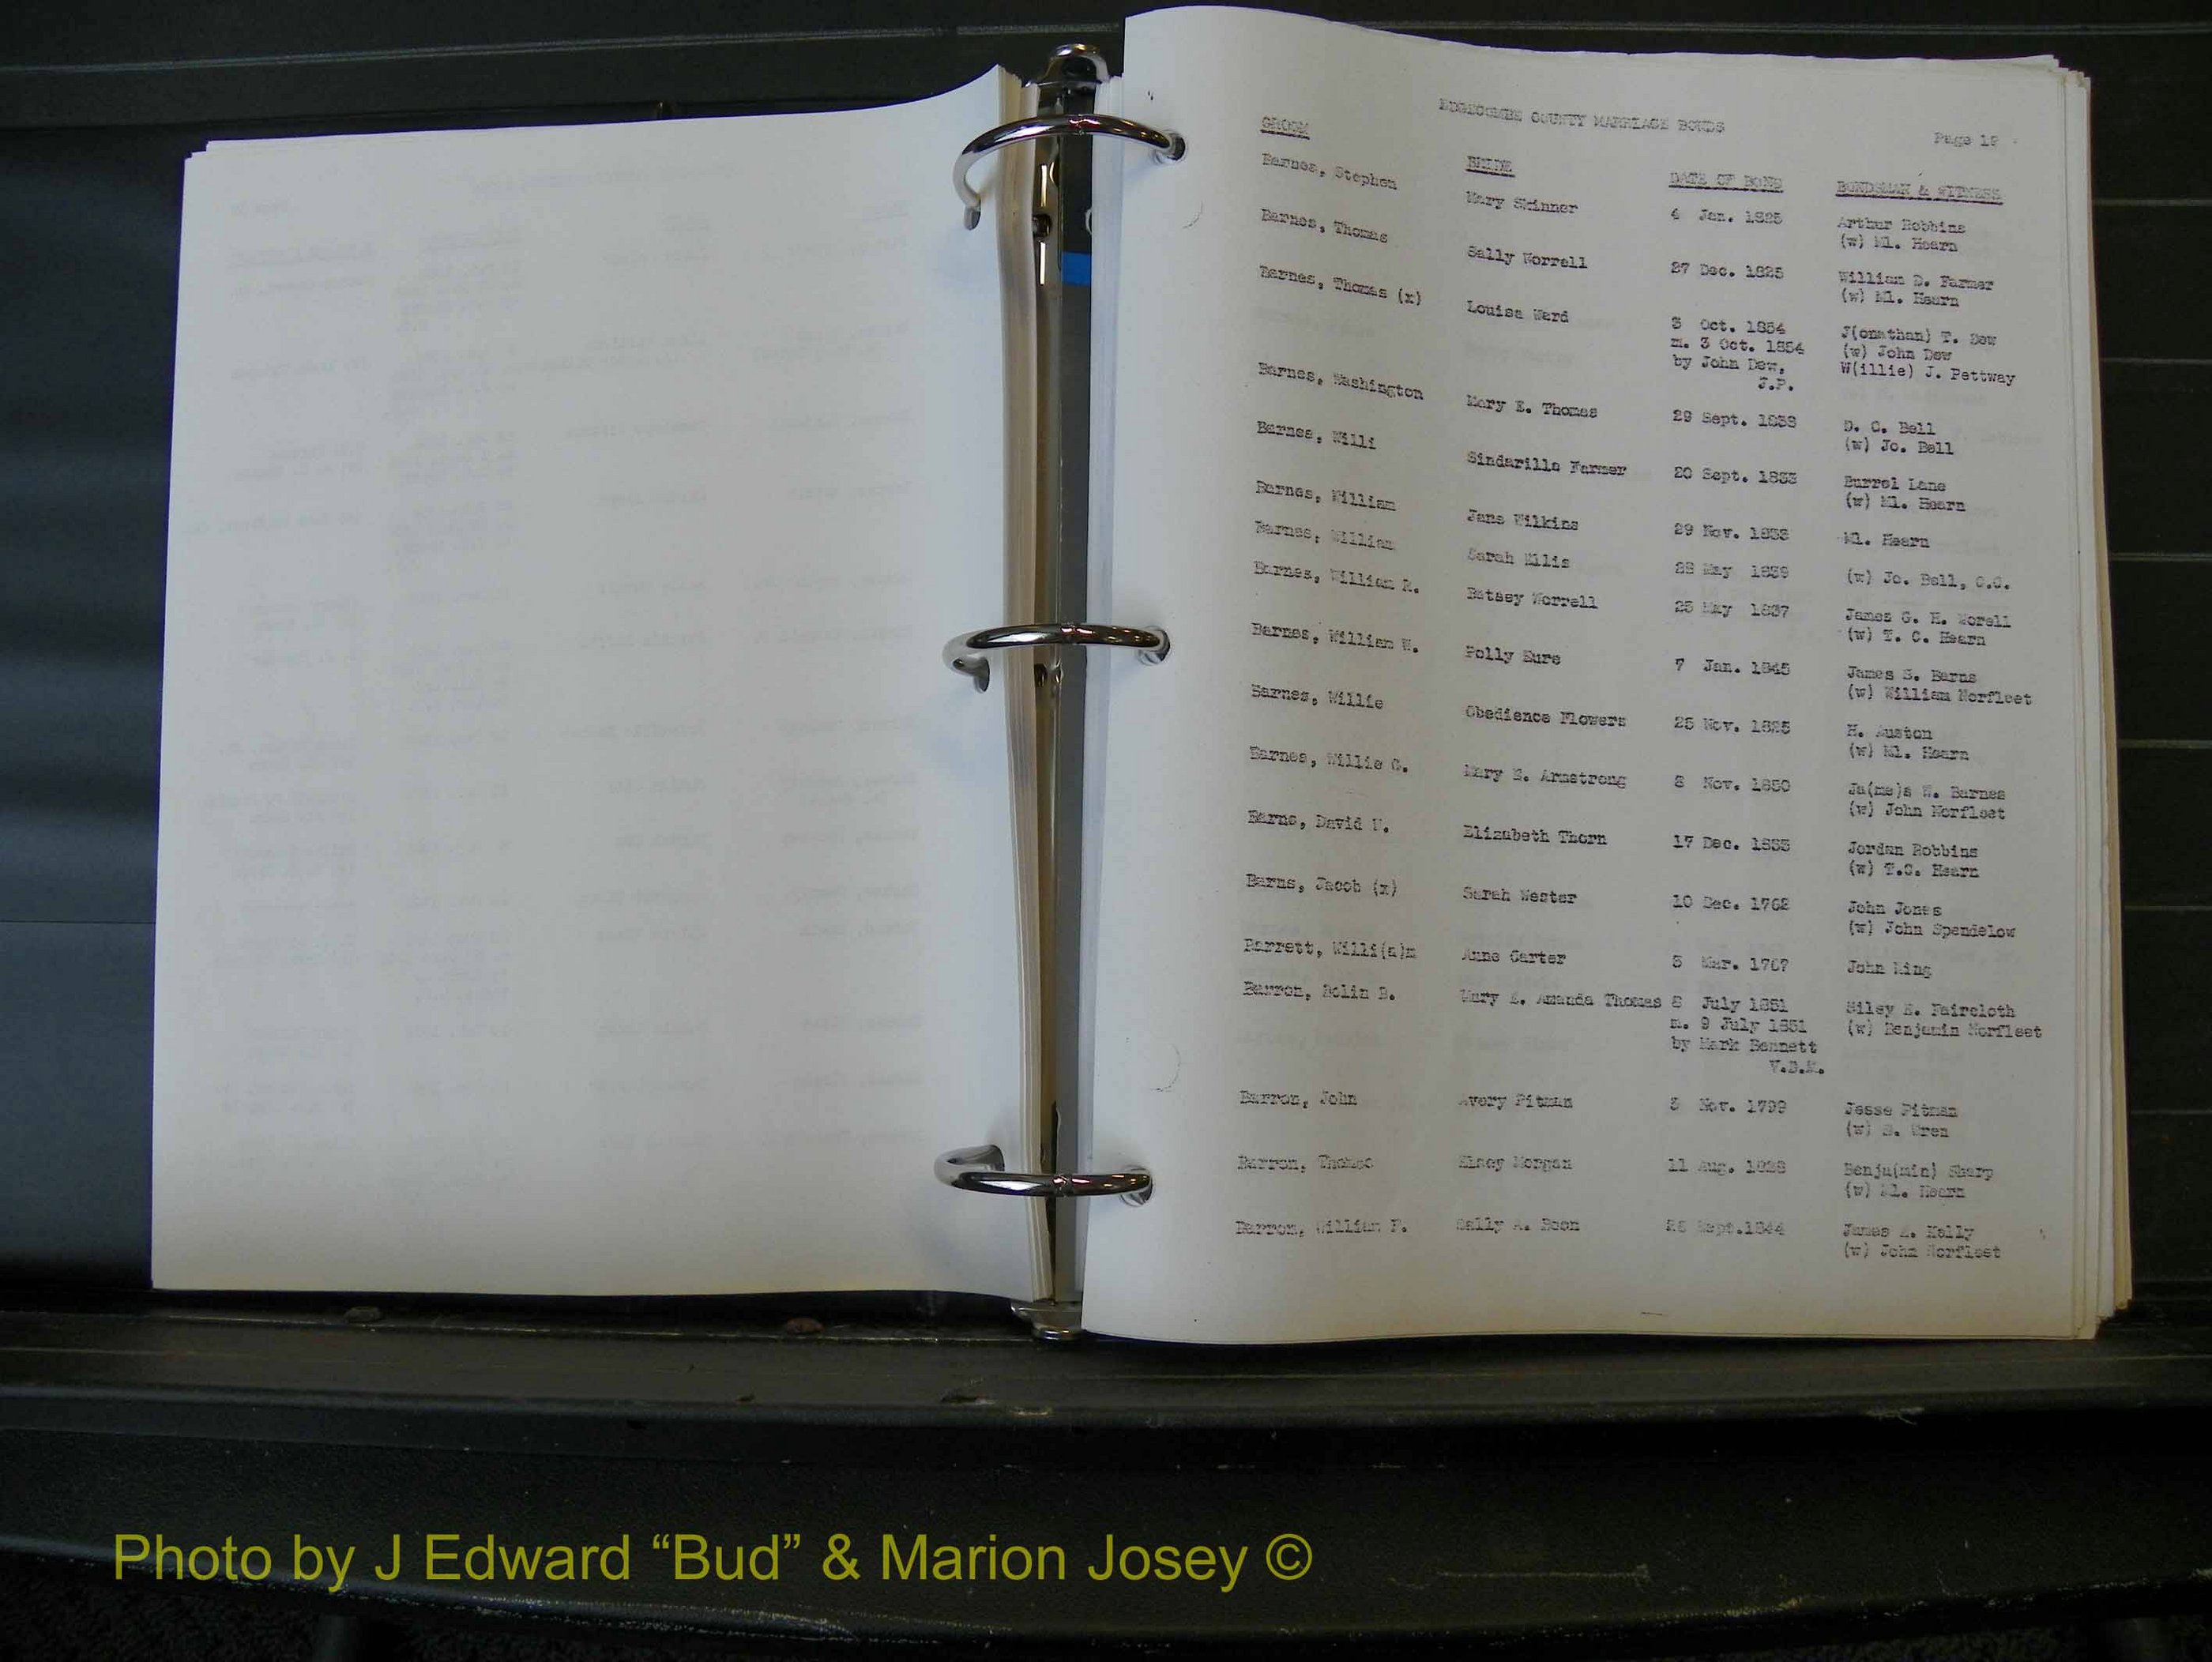 EDGECOMBE COUNTY MARRIAGE BONDS
Page 19
GROOM BRIDE DATE OF BOND BONDSMAN & WITNESS
Barnes, Stephen Mary Skinner 4 Jan. 1825 Arthur Robbins
(w) Ml. Hearn
Barnes, Thomas Sally Worrell 27 Dec. 1825 William D. Farmer
(w) Ml. Hearn
Barnes, Thomas (x) Louisa Ward 3 Oct. 1854 J(onathan) T. Dew
m. 3 Oct. 1854 (w) John Dew
by John Dew, W(illie) J. Pettway
J.P.
Barnes, Washington Mary E. Thomas 29 Sept. D. C. Bell
(w) Jo. Bell
Barnes, Willi Sindarilla Farmer 20 Sept. 1833 Burrel Lane
(w) Ml. Hearn
Barnes, William Jane Wilkins 29 Nov. Ml. Hearn
Barnes, William Sarah Ellis 28 May 1839 (w) Jo. Bell, C.C.
Barnes, William R. Betsey Worrell 25 May 1837 James G. H. Worell
(w) T. C. Hearn
Barnes, William W. Polly Eure 7 Jan. 1845 James S. Barns
(w) William Norfleet
Barnes, Willie Obedience Flowers 25 Nov. 1825 H. Auston
(w) Ml. Hearn
Barnes, Willie G. Mary E. Armstrong 8 Nov. 1850 Ja(me)s W. Barnes
(w) John Norfleet
Barns, David Elizabeth Thorn 17 Dec. Jordan Robbins
(w) T.C. Hearn
Barns, Jacob (x) Sarah Wester 10 Dec. 1762 John Jones
(w) John Spendelow
Barrett, Willi(a)m Anne Carter Mar. 1767 John King
Barron, Bolin B. Mary E. Amanda Thomas 8 July 1851 Wiley E. Faircloth
m. 9 July 1851 (w) Benjamin Norfleet
by Mark Bennett
V.D.M.
Barron, John Avery Pitman Nov. 1799 Jesse Pitman
(w) S. Wren
Barron, Thomas Elsey Morgan 11 Aug. Benja(min) Sharp
(w) Ml. Hearn
Barron, William F. Sally A. Boon Sept. 1844 James Kelly
(w) John Norfleet
Photo by J Edward “Bud” & Marion Josey ©